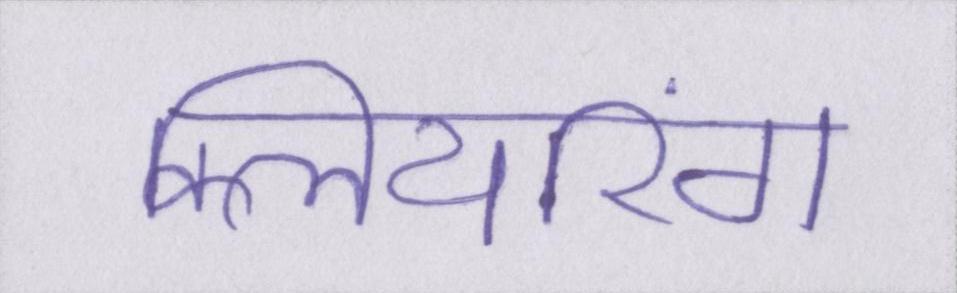 क्लियरिंग